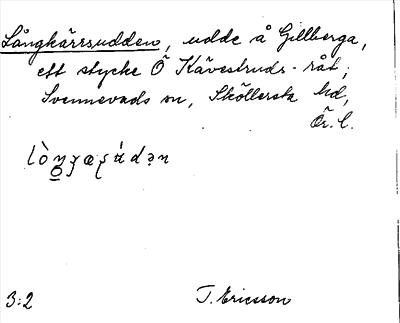 Långkärrsudden, udde å Gillberga,
ett stycke Ö Kävestruds-råt;
Svennevads sn, Sköllersta hd,
Ör. l.
3:2 T. Ericsson